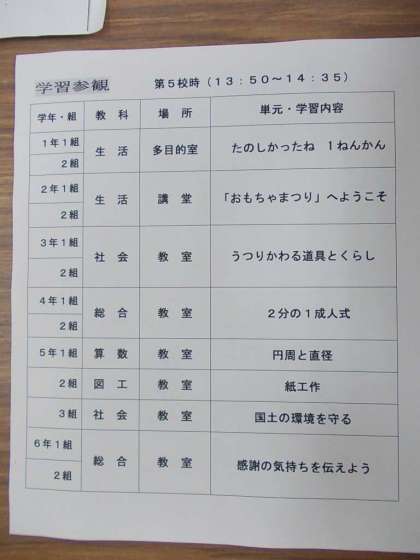 学習参観 第５校時（１３：５０～１４：３５）
学年・組 教科 場所 単元・学習内容
１年１組 生活 多目的室 たのしかったね １ねんかん
２組
２年１組 生活 講堂 「おもちゃまつり」へようこそ
２組
３年１組 社会 教室 うつりかわる道具とくらし
２組
４年１組 総合 教室 ２分の１成人式
２組
５年１組 算数 教室 円周と直径
２組 図工 教室 紙工作
３組 社会 教室 国土の環境を守る
６年１組 総合 教室 感謝の気持ちを伝えよう
２組